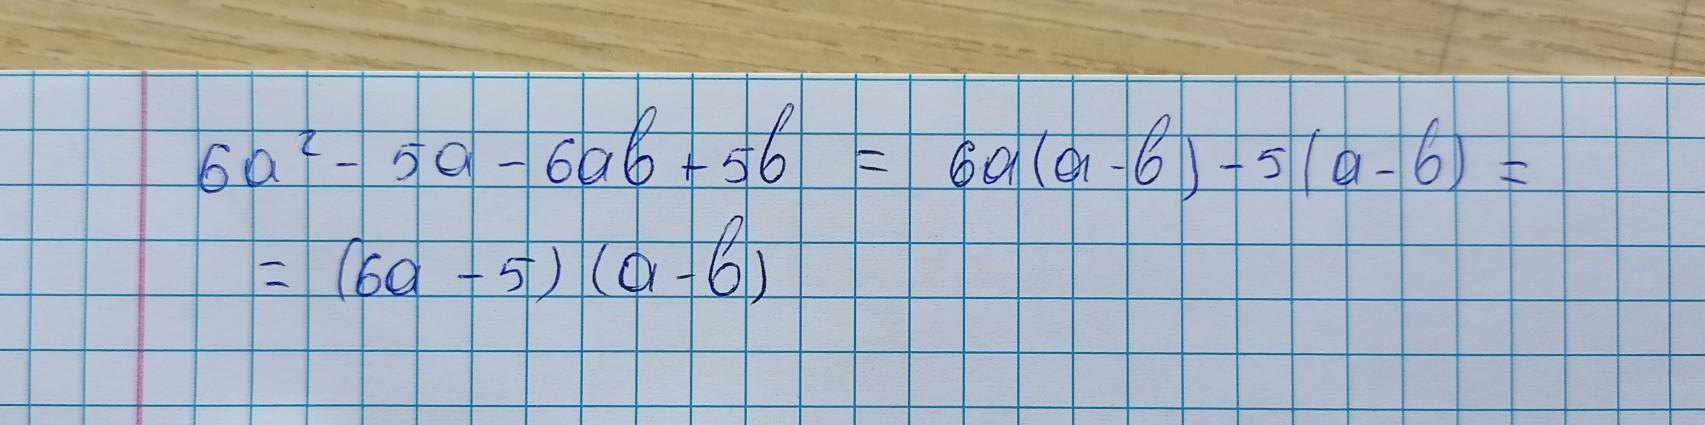 6a² - 5a - 6ab + 5b = 6a(a - b) - 5(a - b) =
= (6a - 5)(a - b)